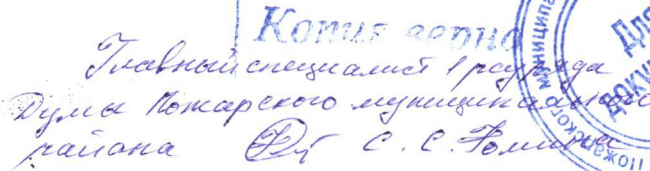 Копия верна
Главный специалист 1 разряда
Думы Пожарского муниципального
района С. С. Фомина
Для
докум
Пожарского муниципа